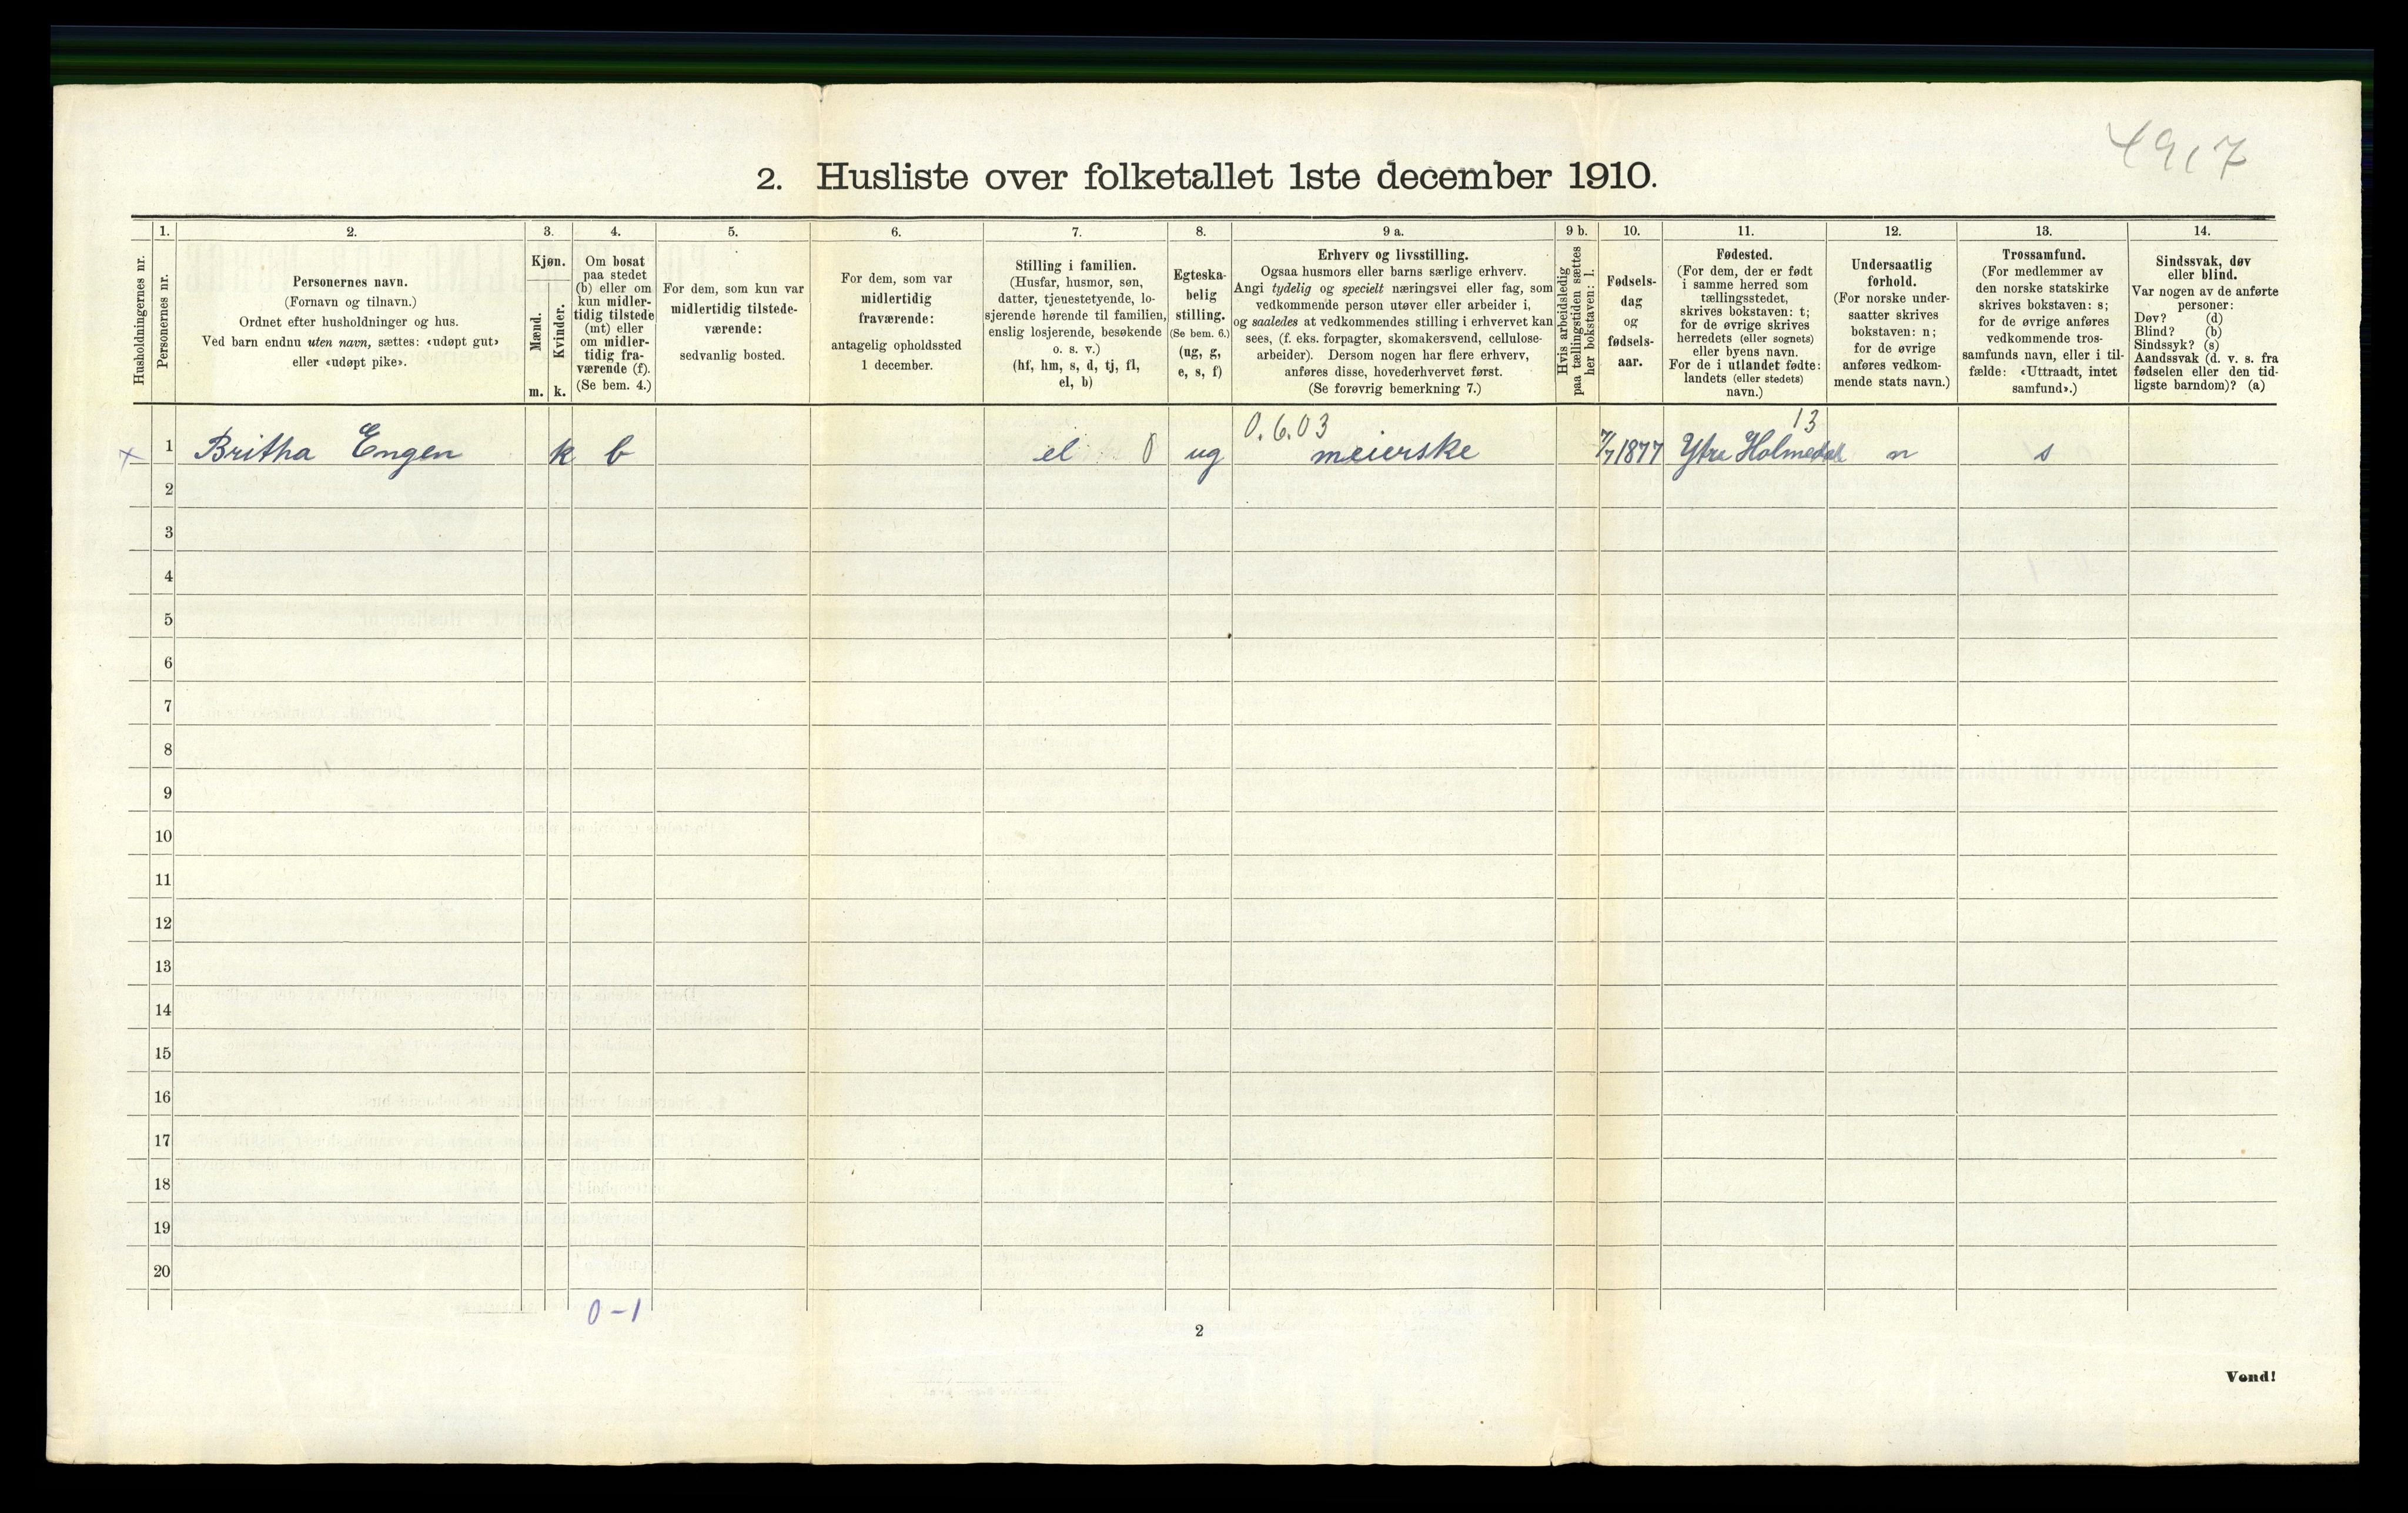 4917
2. Husliste over folketallet 1ste december 1910.
Husholdningernes nr.
1.
Personernes nr.
2.
Personernes navn.
(Fornavn og tilnavn.)
Ordnet efter husholdninger og hus.
Ved barn endnu uten navn, sættes: «udøpt gut»
eller «udøpt pike».
3.
Kjøn.
Mænd.
Kvinder.
m.
k.
4.
Om bosat
paa stedet
(b) eller om
kun midler-
tidig tilstede
(mt) eller
om midler-
tidig fra-
værende (f).
(Se bem. 4.)
5.
For dem, som kun var
midlertidig tilstede-
værende:
sedvanlig bosted.
6.
For dem, som var
midlertidig
fraværende:
antagelig opholdssted
1 december.
7.
Stilling i familien.
(Husfar, husmor, søn,
datter, tjenestetyende, lo-
sjerende hørende til familien,
enslig losjerende, besøkende
o. s. v.)
(hf, hm, s, d, tj, fl,
el, b)
8.
Egteska-
belig
stilling.
(Se bem. 6.)
(ug, g,
e, s, f)
9 a.
Erhverv og livsstilling.
Ogsaa husmors eller barns særlige erhverv.
Angi tydelig og specielt næringsvei eller fag, som
vedkommende person utøver eller arbeider i,
og saaledes at vedkommendes stilling i erhvervet kan
sees, (f. eks. forpagter, skomakersvend, cellulose-
arbeider). Dersom nogen har flere erhverv,
anføres disse, hovederhvervet først.
(Se forøvrig bemerkning 7.)
9 b.
Hvis arbeidsledig
paa tællingstiden sættes
her bokstaven: l.
10.
Fødsels-
dag
og
fødsels-
aar.
11.
Fødested.
(For dem, der er født
i samme herred som
tællingsstedet,
skrives bokstaven: t;
for de øvrige skrives
herredets (eller sognets)
eller byens navn.
For de i utlandet fødte:
landets (eller stedets)
navn.)
12.
Undersaatlig
forhold.
(For norske under-
saatter skrives
bokstaven: n;
for de øvrige
anføres vedkom-
mende stats navn.)
13.
Trossamfund.
(For medlemmer av
den norske statskirke
skrives bokstaven: s;
for de øvrige anføres
vedkommende tros-
samfunds navn, eller i til-
fælde: «Uttraadt, intet
samfund».)
14.
Sindssvak, døv
eller blind.
Var nogen av de anførte
personer:
Døv? (d)
Blind? (b)
Sindssyk? (s)
Aandssvak (d. v. s. fra
fødselen eller den tid-
ligste barndom)? (a)
0.6.03 13
x 1 Britha Engen k b el 0 ug meierske 7/7 1877 Ytre Holmedal n s
2
3
4
5
6
7
8
9
10
11
12
13
14
15
16
17
18
19
20
0-1
2
Vend!